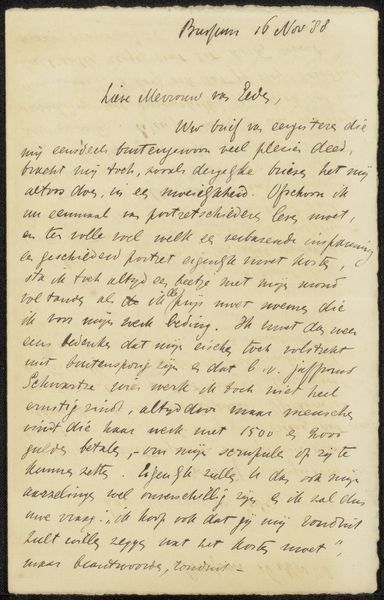 Bussum 16 Nov '88
Lieve Mevrouw van Eeden,
Uw brief van eergisteren die
mij eensdeels buitengewoon veel plezier deed,
bracht mij toch, zooals dergelijke brieven het mij
altoos doen, in een moeielijkheid. Ofschoon ik
nu eenmaal van portretschilderen leven moet,
en ten volle voel welk een verbazende inspanning
een geschilderd portret eigenlijk moet kosten,
sta ik toch altijd een beetje met mijn mond
vol tanden als ik den prijs moet noemen die
ik voor mijn werk beding. Ik moet dan weer
eens bedenken dat mijn eischen toch volstrekt
niet buitensporig zijn en dat b.v. Juffrouw
Schwartze wier werk ik toch niet heel
ernstig vind, altijd door maar menschen
vindt die haar werk met 1500 en 2000
gulden betalen, - om mijn scrupule op zij te
kunnen zetten. Eigenlijk zullen U dan ook mijn
aarzelingen wel onverschillig zijn en ik zal dus
uwe vraag: "ik hoop ook dat gij mij ronduit
zult willen zeggen wat het kosten moet",
maar beantwoorden, ronduit -